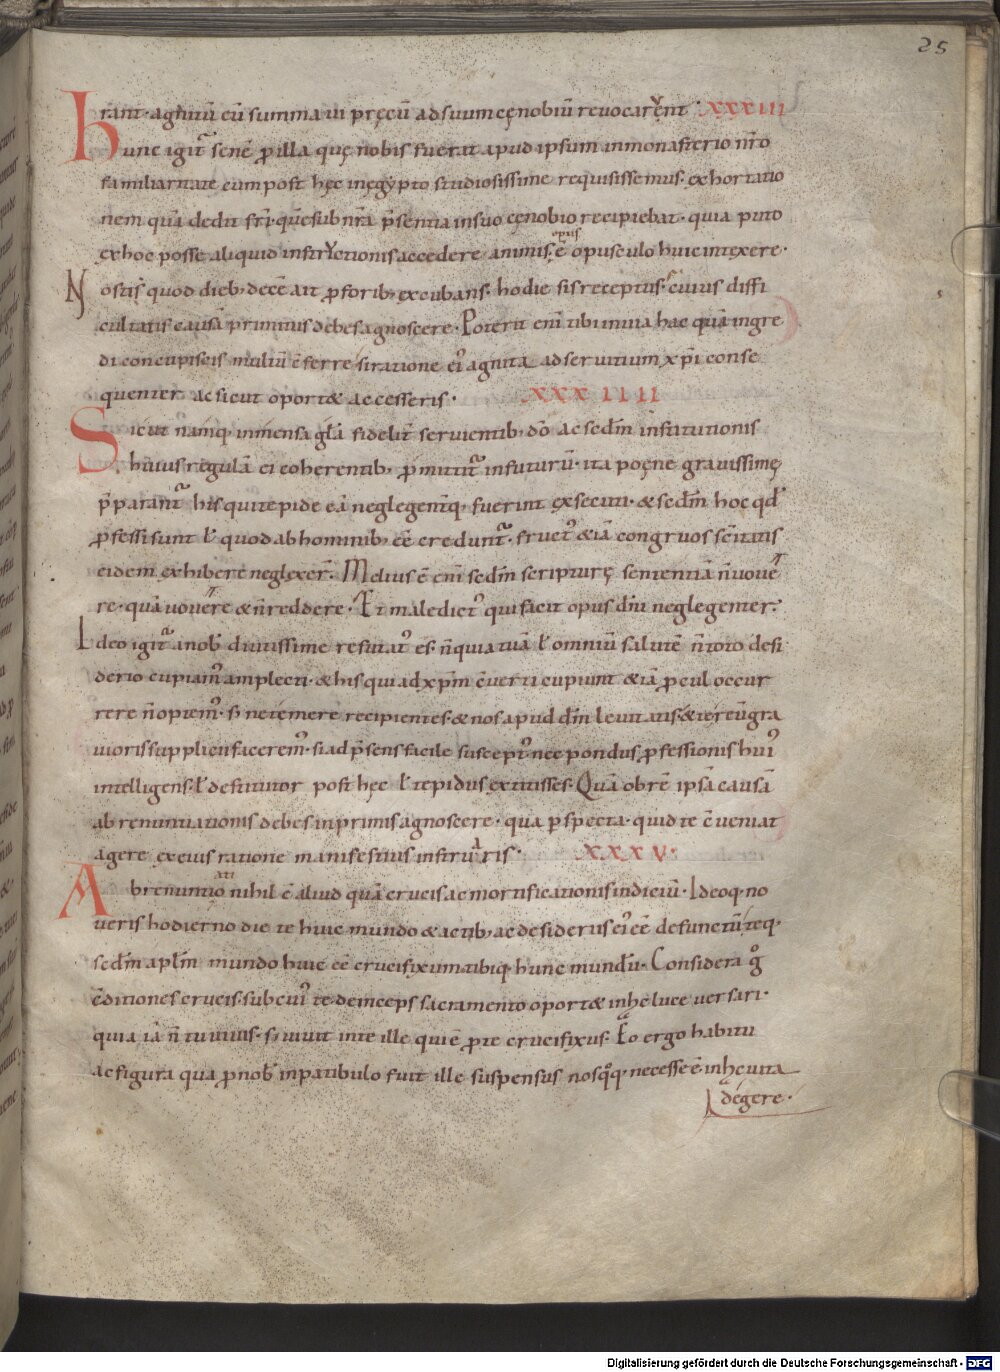 25
rant· agnitū cū summa ui pręcū ad suum cęnobiū reuocarent· XXXIII
Hunc igit᷑ senē ꝓ illa quę nobis fuerat apud ipsum in monasterio nr̄o
familiaritate cum post hęc in egẏpto studiosissime requisissemus· exhortatio
nem quā dedit fr̄i· quē sub nr̄a p̄sentia in suo cęnobio recipiebat· quia puto
ex hoc posse aliquid instructionis accedere animis· ē opus opusculo huic intexere·
Nostis quod dieb; decē ait ꝓ forib; excubans· hodie sis receptus· cuius diffi
cultatis causā primitus debes agnoscere· Poterit eni᷑ tibi in uia hac quā ingre
di concupiscis multū ēferre si ratione ei᷒ agnita ad seruitium xp̄i conse
quenter ac sicut oport& accesseris· XXXIIII
Sicut namq; inmensa gl̄a fidelit̄ seruientib; dō ac sedm̄ institutionis
huius regulā ei coherentib; ꝓmittit᷑ in futurū· ita poęne grauissimę
p̄parant᷑ his qui tepide eā neglegent̄q; fuerint exsecuti· & sedm̄ hoc qd̄
ꝓfessi sunt ł quod ab hominib; ēē credunt᷑· fruct᷒ &iā congruos sc̄itatis
eidem exhibere neglexer̄· Melius ē eni᷑ sedm̄ scripturę sententiā n̄ uoue
re· quā uouere & n̄ reddere· Et maledict᷒ qui facit opus dn̄i neglegenter·
Ideo igit᷑ a nob̄ diutissime refutat᷒ es· n̄ quia tuā ł omniū salutē n̄ toto desi
derio cupiam᷒ amplecti· & his qui ad xp̄m ēuerti cupiunt &iā ꝓcul occur
rere n̄ optem᷒· s; ne temere recipientes· & nos apud dm̄ leuitatis· & te reū gra
uioris supplicii facerem᷒· si ad p̄sens facile suscept᷒ nec pondus ꝓfessionis hui᷒
intelligens· ł destitutor post hęc ł tepidus extitisses· Quā obrē ipsā causā
abrenuntiationis debes inprimis agnoscere· qua p̄specta· quid te ēueniat
agere ex eius ratione manifestius instruaris· XXXV·
Abrenuntiatio nihil ē aliud quā crucis ac mortificationis indiciū· Ideoq; no
ueris hodierno die te huic mundo & actib; ac desideriis ei᷒ ēē defunctū teq;
sedm̄ aplm̄ mundo huic ēē crucifixum tibiq; hunc mundū· Considera g̊
ēditiones crucis· sub cui᷒ te deinceps sacramento oport& in hęc luce uersari·
quia iā n̄ tu uiuis· s; uiuit in te ille qui ē ꝓ te crucifixus· Eo ergo habitu
ac figura qua ꝓ nob̄ in patibulo fuit ille suspensus nos qq; necesse ē in hęc uita
degere·
Digitalisierung gefördert durch die Deutsche Forschungsgemeinschaft - DFG